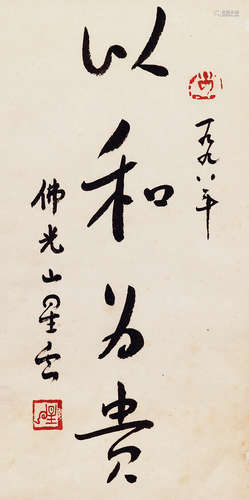 一九九八年
以和为贵
佛光山星云